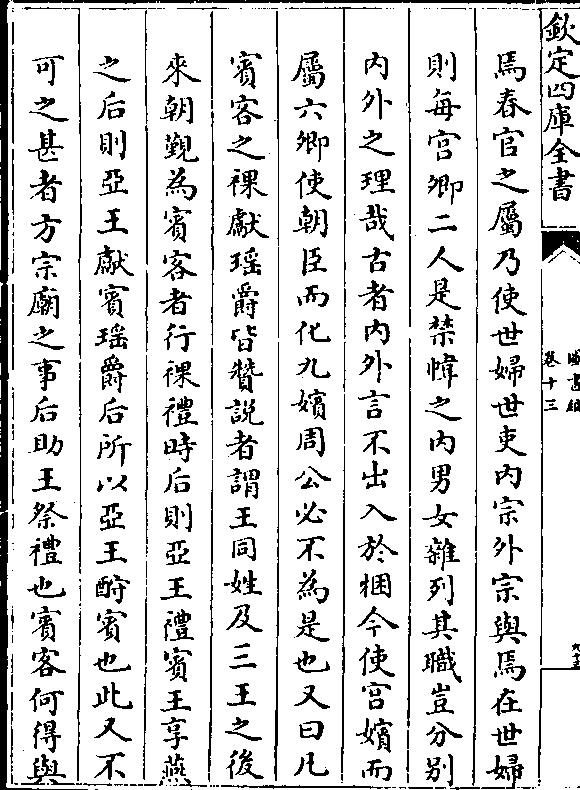 欽定四庫全書
卷十三
焉春官之屬乃使世婦世吏内宗外宗與焉在世婦
則每宫卿二人是禁幃之内男女雜列其職豈分别
内外之理哉古者内外言不出入於梱今使宫嬪而
屬六卿使朝臣而化九嬪周公必不為是也又曰凡
賓客之祼獻瑶爵皆贊説者謂王同姓及三王之後
來朝覲為賓客者行祼禮時后則亞王禮賓王享燕
之后則亞王獻賓瑶爵后所以亞王酧賓也此又不
可之甚者方宗廟之事后助王祭禮也賓客何得與